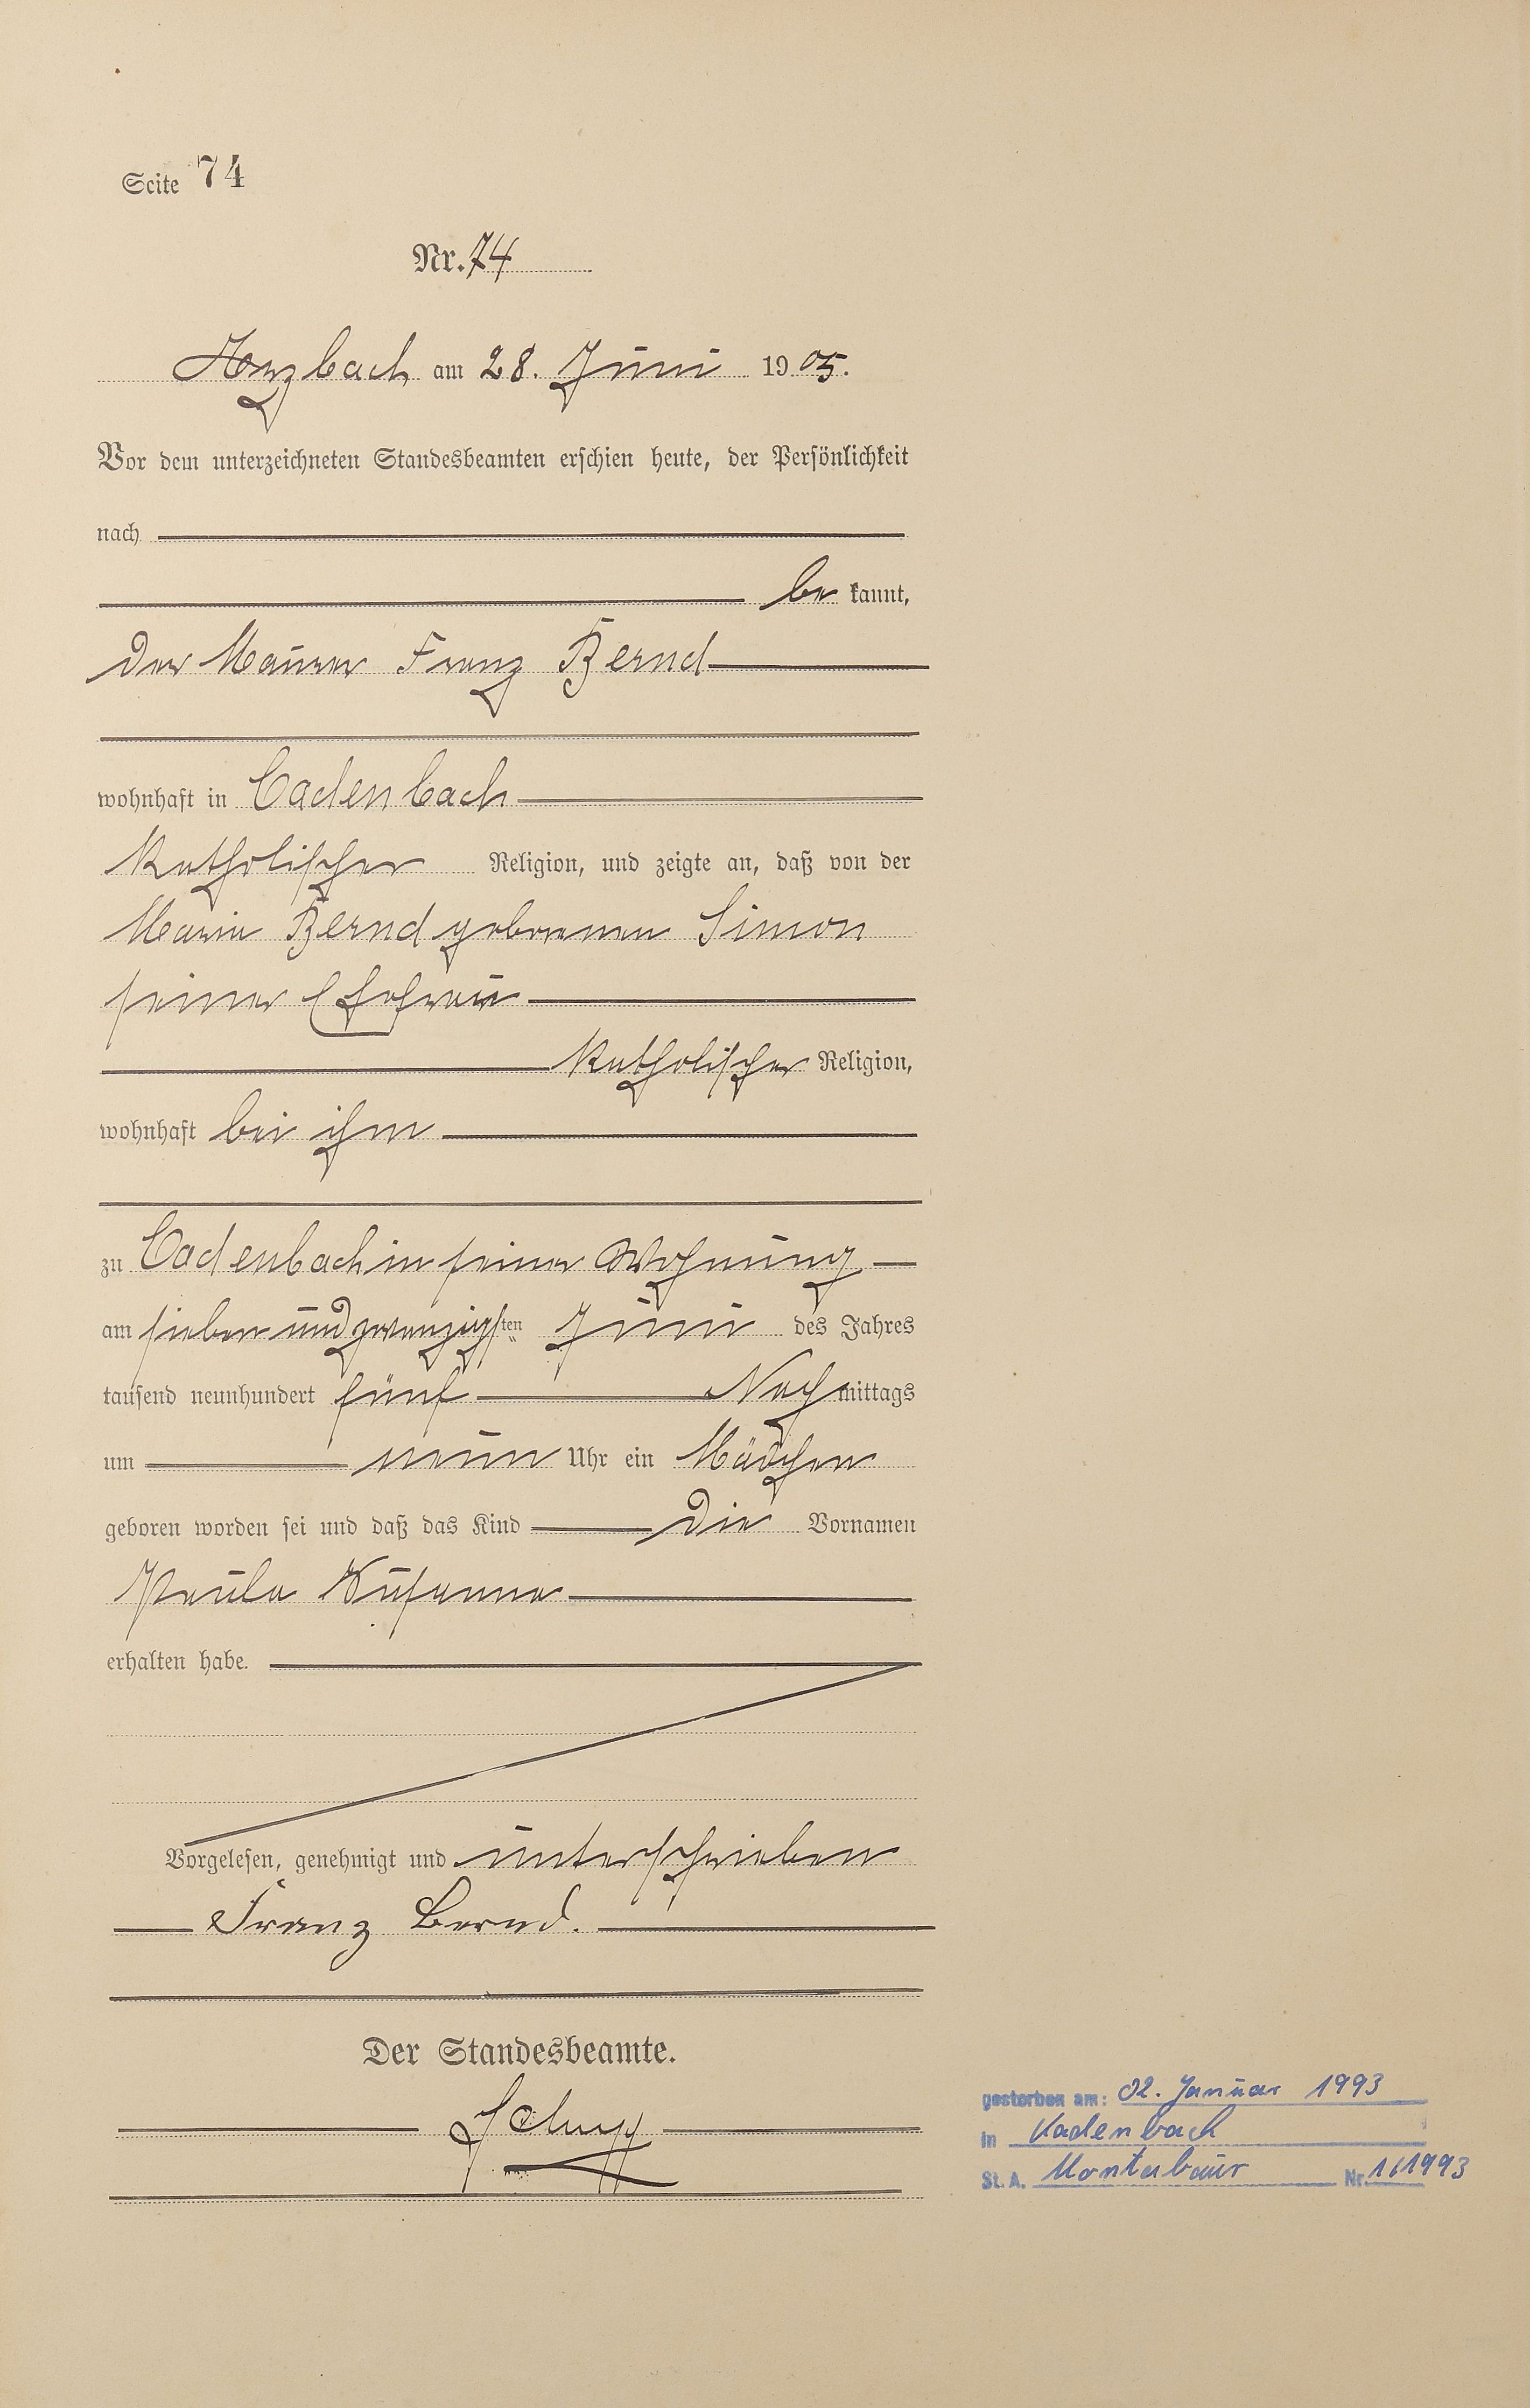 Seite 74
Nr. 74
Arzbach am 28. Juni 1905.
Vor dem unterzeichneten Standesbeamten erschien heute, der Persönlichkeit
nach
be kannt,
der Maurer Franz Bernd
wohnhaft in Cadenbach
katholischer Religion, und zeigte an, daß von der
Maria Bernd geborenen Simon
seiner Ehefrau
katholischer Religion,
wohnhaft bei ihm
zu Cadenbach in seiner Wohnung
am sieben und zwanzigsten Juni des Jahres
tausend neunhundert fünf Nachmittags
um neun Uhr ein Mädchen
geboren worden sei und daß das Kind die Vornamen
Paula Susanna
erhalten habe.
Vorgelesen, genehmigt und unterschrieben
Franz Bernd.
Der Standesbeamte.
gestorben am: 02. Januar 1993
in Kadenbach
St. A. Montabaur Nr. 1/1993